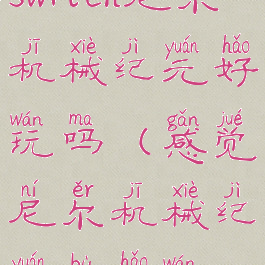 switch尼尔
jī xiè jì yuán hǎo
机械纪元好
wán ma gǎn jué
玩吗（感觉
ní ěr jī xiè jì
尼尔机械纪
yuán bù hǎo wán